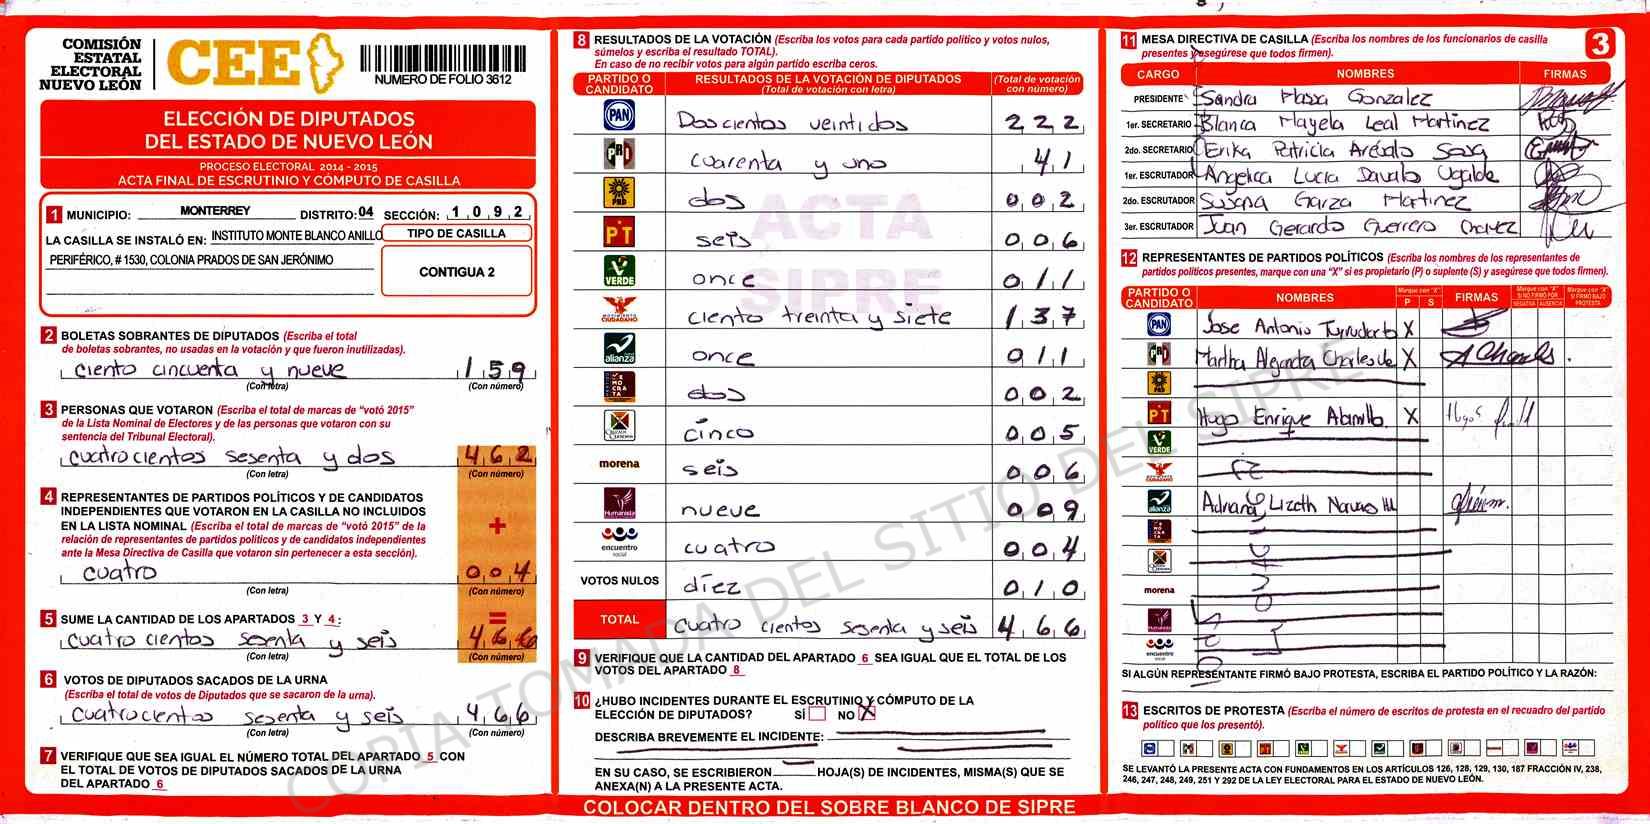 COMISIÓN
ESTATAL
ELECTORAL
NUEVO LEÓN
CEE
NUMERO DE FOLIO 3612
ELECCIÓN DE DIPUTADOS
DEL ESTADO DE NUEVO LEÓN
PROCESO ELECTORAL 2014 - 2015
ACTA FINAL DE ESCRUTINIO Y CÓMPUTO DE CASILLA
1 MUNICIPIO: MONTERREY DISTRITO: 04 SECCIÓN: 1092
LA CASILLA SE INSTALÓ EN: INSTITUTO MONTE BLANCO ANILLO
PERIFÉRICO, # 1530, COLONIA PRADOS DE SAN JERÓNIMO
TIPO DE CASILLA
CONTIGUA 2
2 BOLETAS SOBRANTES DE DIPUTADOS (Escriba el total
de boletas sobrantes, no usadas en la votación y que fueron inutilizadas).
ciento cincuenta y nueve 159
(Con letra) (Con número)
3 PERSONAS QUE VOTARON (Escriba el total de marcas de "votó 2015"
de la Lista Nominal de Electores y de las personas que votaron con su
sentencia del Tribunal Electoral).
cuatrocientos sesenta y dos 462
(Con letra) (Con número)
4 REPRESENTANTES DE PARTIDOS POLÍTICOS Y DE CANDIDATOS
INDEPENDIENTES QUE VOTARON EN LA CASILLA NO INCLUIDOS
EN LA LISTA NOMINAL (Escriba el total de marcas de "votó 2015" de la
relación de representantes de partidos políticos y de candidatos independientes
ante la Mesa Directiva de Casilla que votaron sin pertenecer a esta sección).
+
cuatro 004
(Con letra) (Con número)
=
5 SUME LA CANTIDAD DE LOS APARTADOS 3 Y 4:
cuatro cientos sesenta y seis 466
(Con letra) (Con número)
6 VOTOS DE DIPUTADOS SACADOS DE LA URNA
(Escriba el total de votos de Diputados que se sacaron de la urna).
cuatrocientos sesenta y seis 466
(Con letra) (Con número)
7 VERIFIQUE QUE SEA IGUAL EL NÚMERO TOTAL DEL APARTADO 5 CON
EL TOTAL DE VOTOS DE DIPUTADOS SACADOS DE LA URNA
DEL APARTADO 6
8 RESULTADOS DE LA VOTACIÓN (Escriba los votos para cada partido político y votos nulos,
súmelos y escriba el resultado TOTAL).
En caso de no recibir votos para algún partido escriba ceros.
PARTIDO O CANDIDATO RESULTADOS DE LA VOTACIÓN DE DIPUTADOS (Total de votación con letra) (Total de votación con número)
PAN Doscientos veintidos 222
PRD cuarenta y uno 41
PRD dos 002
PT seis 006
VERDE once 011
MOVIMIENTO CIUDADANO ciento treinta y siete 137
alianza once 011
DEMOCRATA dos 002
CRUZADA CIUDADANA cinco 005
morena seis 006
Humanista nueve 009
encuentro social cuatro 004
VOTOS NULOS diez 010
TOTAL cuatro cientos sesenta y seis 466
ACTA
SIPRE
9 VERIFIQUE QUE LA CANTIDAD DEL APARTADO 6 SEA IGUAL QUE EL TOTAL DE LOS
VOTOS DEL APARTADO 8
10 ¿HUBO INCIDENTES DURANTE EL ESCRUTINIO Y CÓMPUTO DE LA
ELECCIÓN DE DIPUTADOS? SÍ NO X
DESCRIBA BREVEMENTE EL INCIDENTE:
EN SU CASO, SE ESCRIBIERON HOJA(S) DE INCIDENTES, MISMA(S) QUE SE
ANEXA(N) A LA PRESENTE ACTA.
COLOCAR DENTRO DEL SOBRE BLANCO DE SIPRE
11 MESA DIRECTIVA DE CASILLA (Escriba los nombres de los funcionarios de casilla
presentes y asegúrese que todos firmen).
3
CARGO NOMBRES FIRMAS
PRESIDENTE Sandra Massa Gonzalez
1er. SECRETARIO Blanca Mayela Leal Martinez
2do. SECRETARIO Erika Patricia Arévalo Sosa
1er. ESCRUTADOR Angelica Lucia Davalos Ugalde
2do. ESCRUTADOR Susana Garza Martinez
3er. ESCRUTADOR Juan Gerardo Guerrero Chavez
12 REPRESENTANTES DE PARTIDOS POLÍTICOS (Escriba los nombres de los representantes de
partidos políticos presentes, marque con una "X" si es propietario (P) o suplente (S) y asegúrese que todos firmen).
PARTIDO O CANDIDATO NOMBRES Marque con "X" P S FIRMAS Marque con "X" SI NO FIRMÓ POR NEGATIVA AUSENCIA Marque con "X" SI FIRMÓ BAJO PROTESTA
PAN Jose Antonio X
PRI Martha Alejandra X
PRD
PT Hugo Enrique X
VERDE
alianza Adriana Lizeth
morena
Humanista
encuentro social
SI ALGÚN REPRESENTANTE FIRMÓ BAJO PROTESTA, ESCRIBA EL PARTIDO POLÍTICO Y LA RAZÓN:
13 ESCRITOS DE PROTESTA (Escriba el número de escritos de protesta en el recuadro del partido
político que los presentó).
SE LEVANTÓ LA PRESENTE ACTA CON FUNDAMENTOS EN LOS ARTÍCULOS 126, 128, 129, 130, 187 FRACCIÓN IV, 238,
246, 247, 248, 249, 251 Y 292 DE LA LEY ELECTORAL PARA EL ESTADO DE NUEVO LEÓN.
COPIA TOMADA DEL SITIO DEL SIPRE